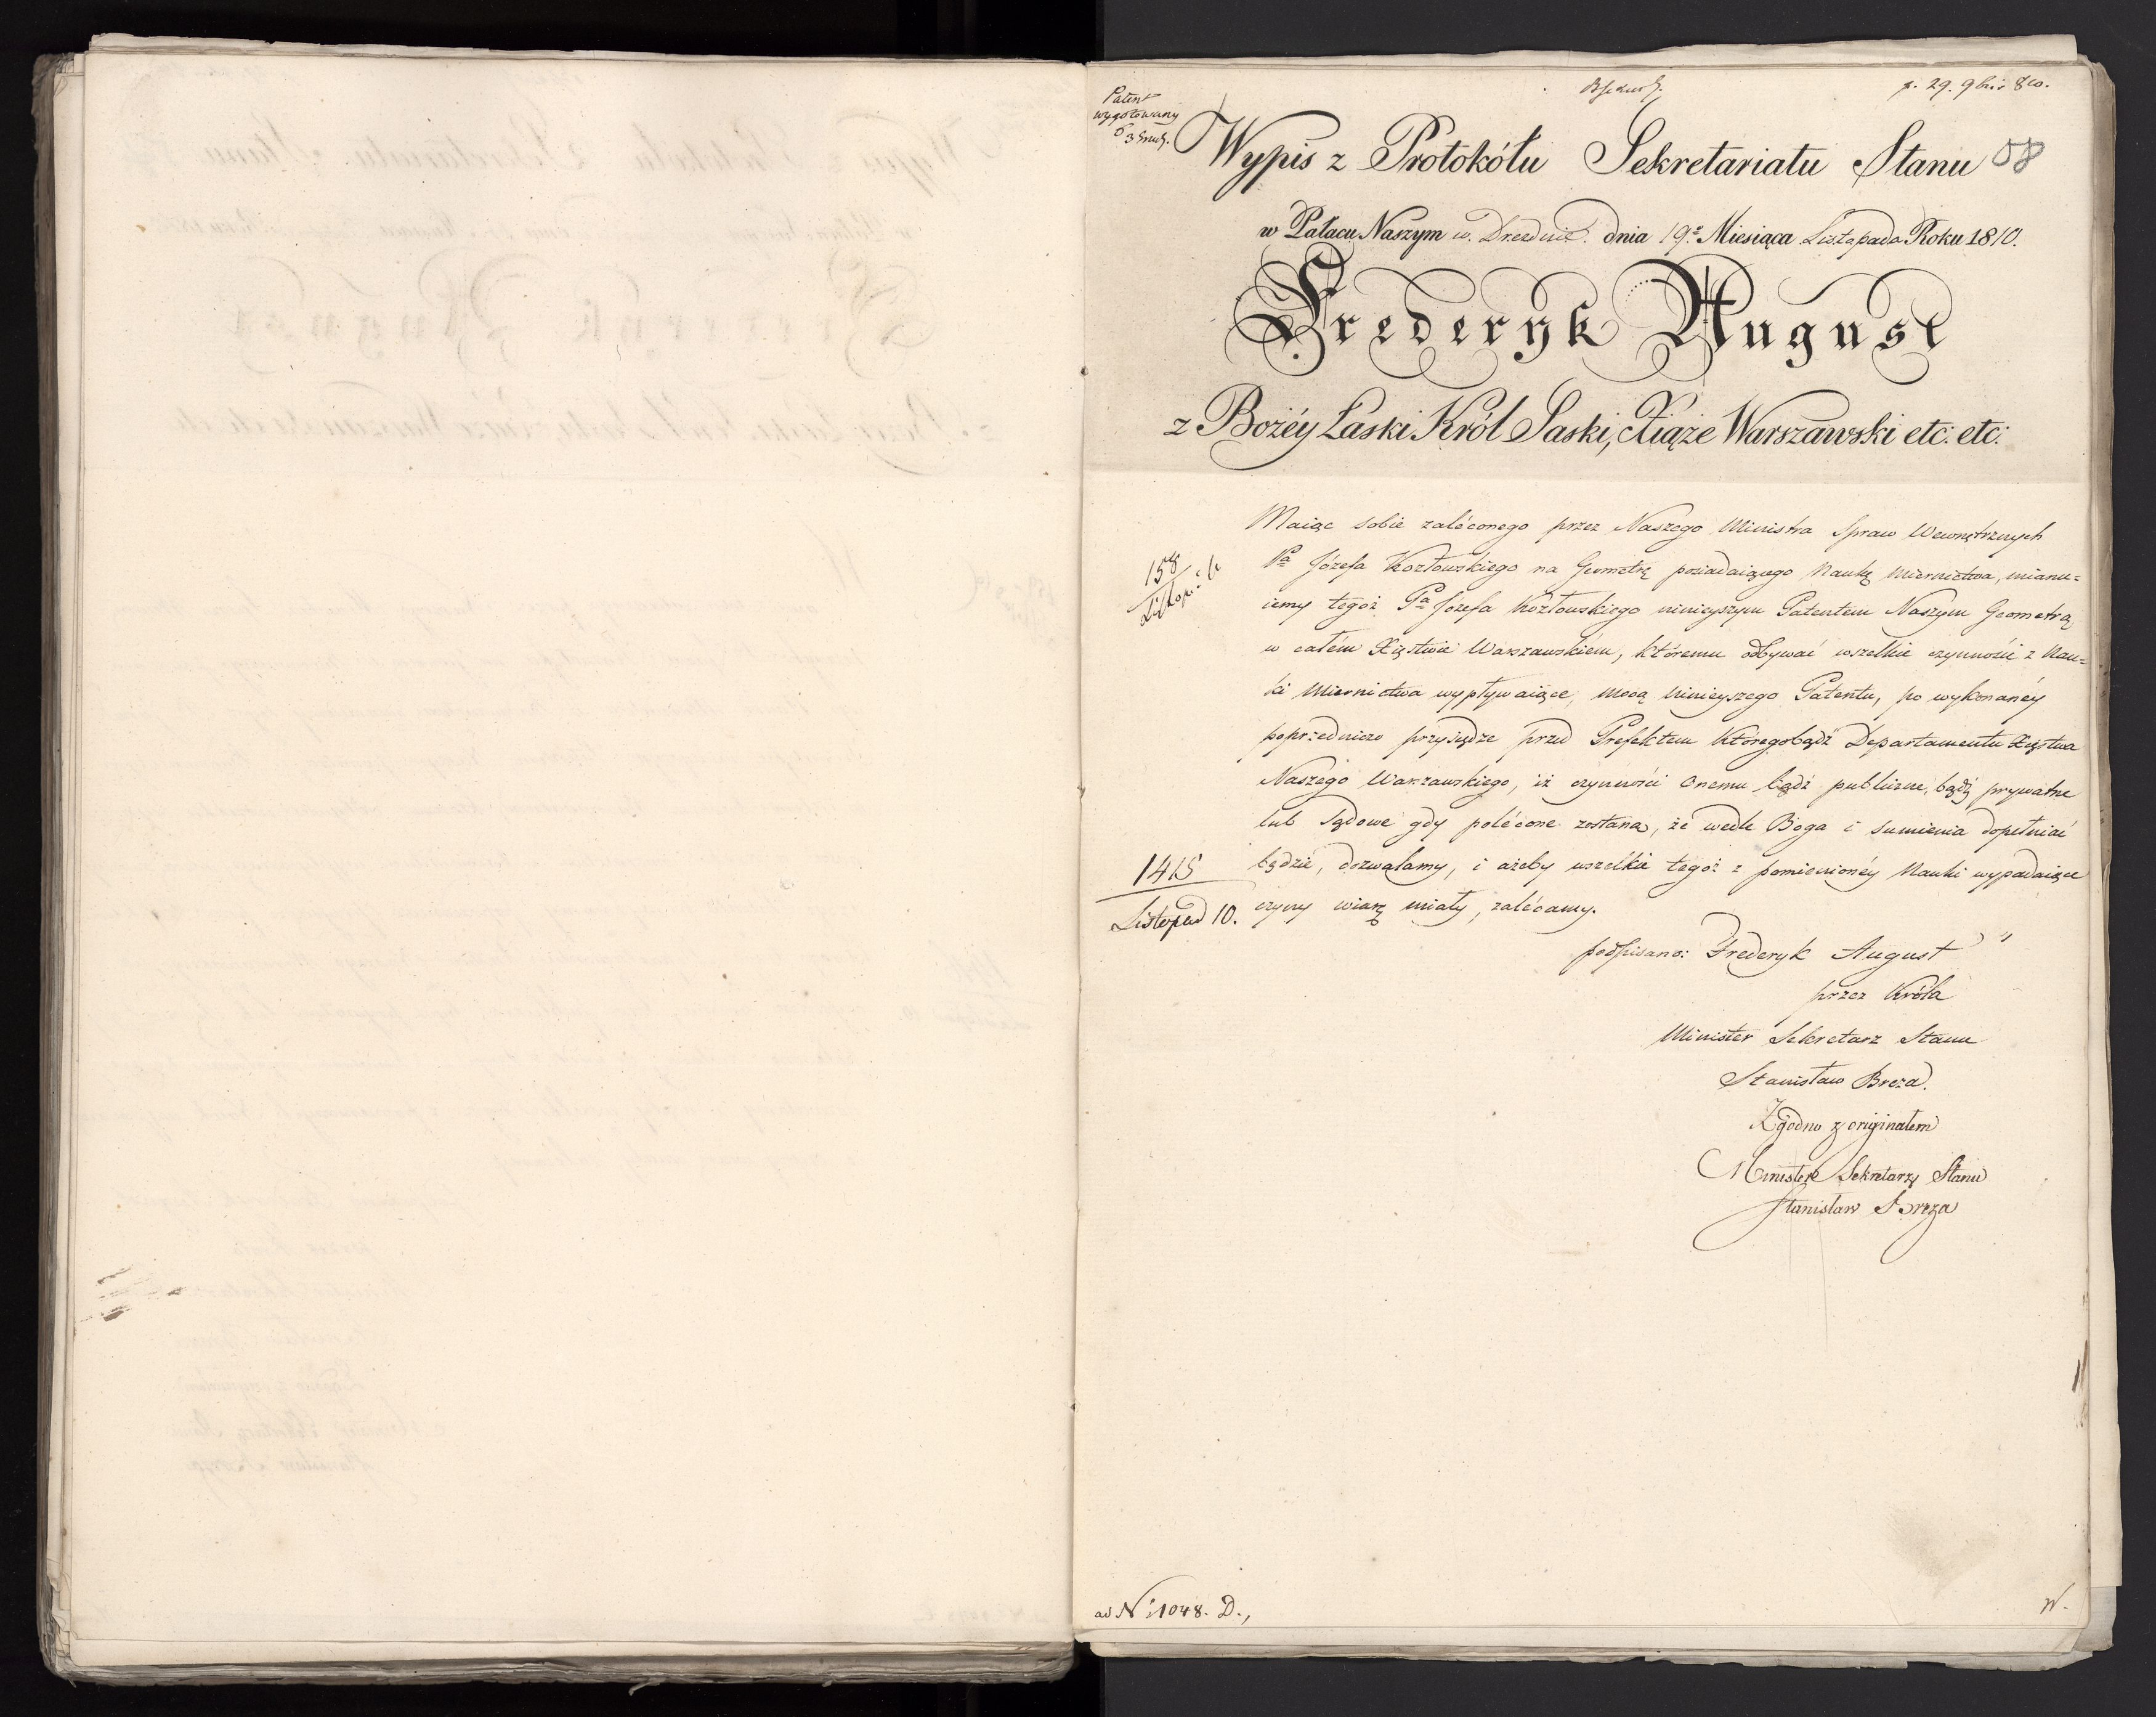 Patent
wygotowany
d 3 Grud.
p. 29. 9bris 810.
Wypis z Protokółu Sekretariatu Stanu 58
w Pałacu Naszym w Dreźnie dnia 19º Miesiąca Listopada Roku 1810.
Frederyk August
z Bożéy Łaski Król Saski, Xiąże Warszawski etc: etc:
Maiąc sobie zaléconego przez Naszego Ministra Spraw Wewnętrznych
Pª Józefa Kozłowskiego na Geometrę posiadaiącego Naukę Miernictwa, mianu=
iemy tegoż Pª Józefa Kozłowskiego ninieyszym Patentem Naszym Geometrą
w całém Xięstwie Warszawskiém, któremu odbywać wszelkie czynności z Nau=
ki Miernictwa wypływaiące, mocą ninieyszego Patentu, po wykonanéy
poprzedniczo przysiędze przed Prefektem któregobądź Departamentu Xięstwa
Naszego Warszawskiego, iż czynności onemu bądź publiczne, bądź prywatne
lub Sądowe gdy polécone zostaną, że wedle Boga i sumienia dopełniać
będzie, dozwalamy, i ażeby wszelkie tegoż z pomienionéy Nauki wypadaiące
czyny wiarę miały, zalécamy.
158
Listop:
1415
Listopad 10.
podpisano: Frederyk August
przez Króla
Minister Sekretarz Stanu
Stanisław Breza.
Zgodno z originałem
Minister Sekretarz Stanu
Stanisław Breza
ad Nº 1048. D.,
W.